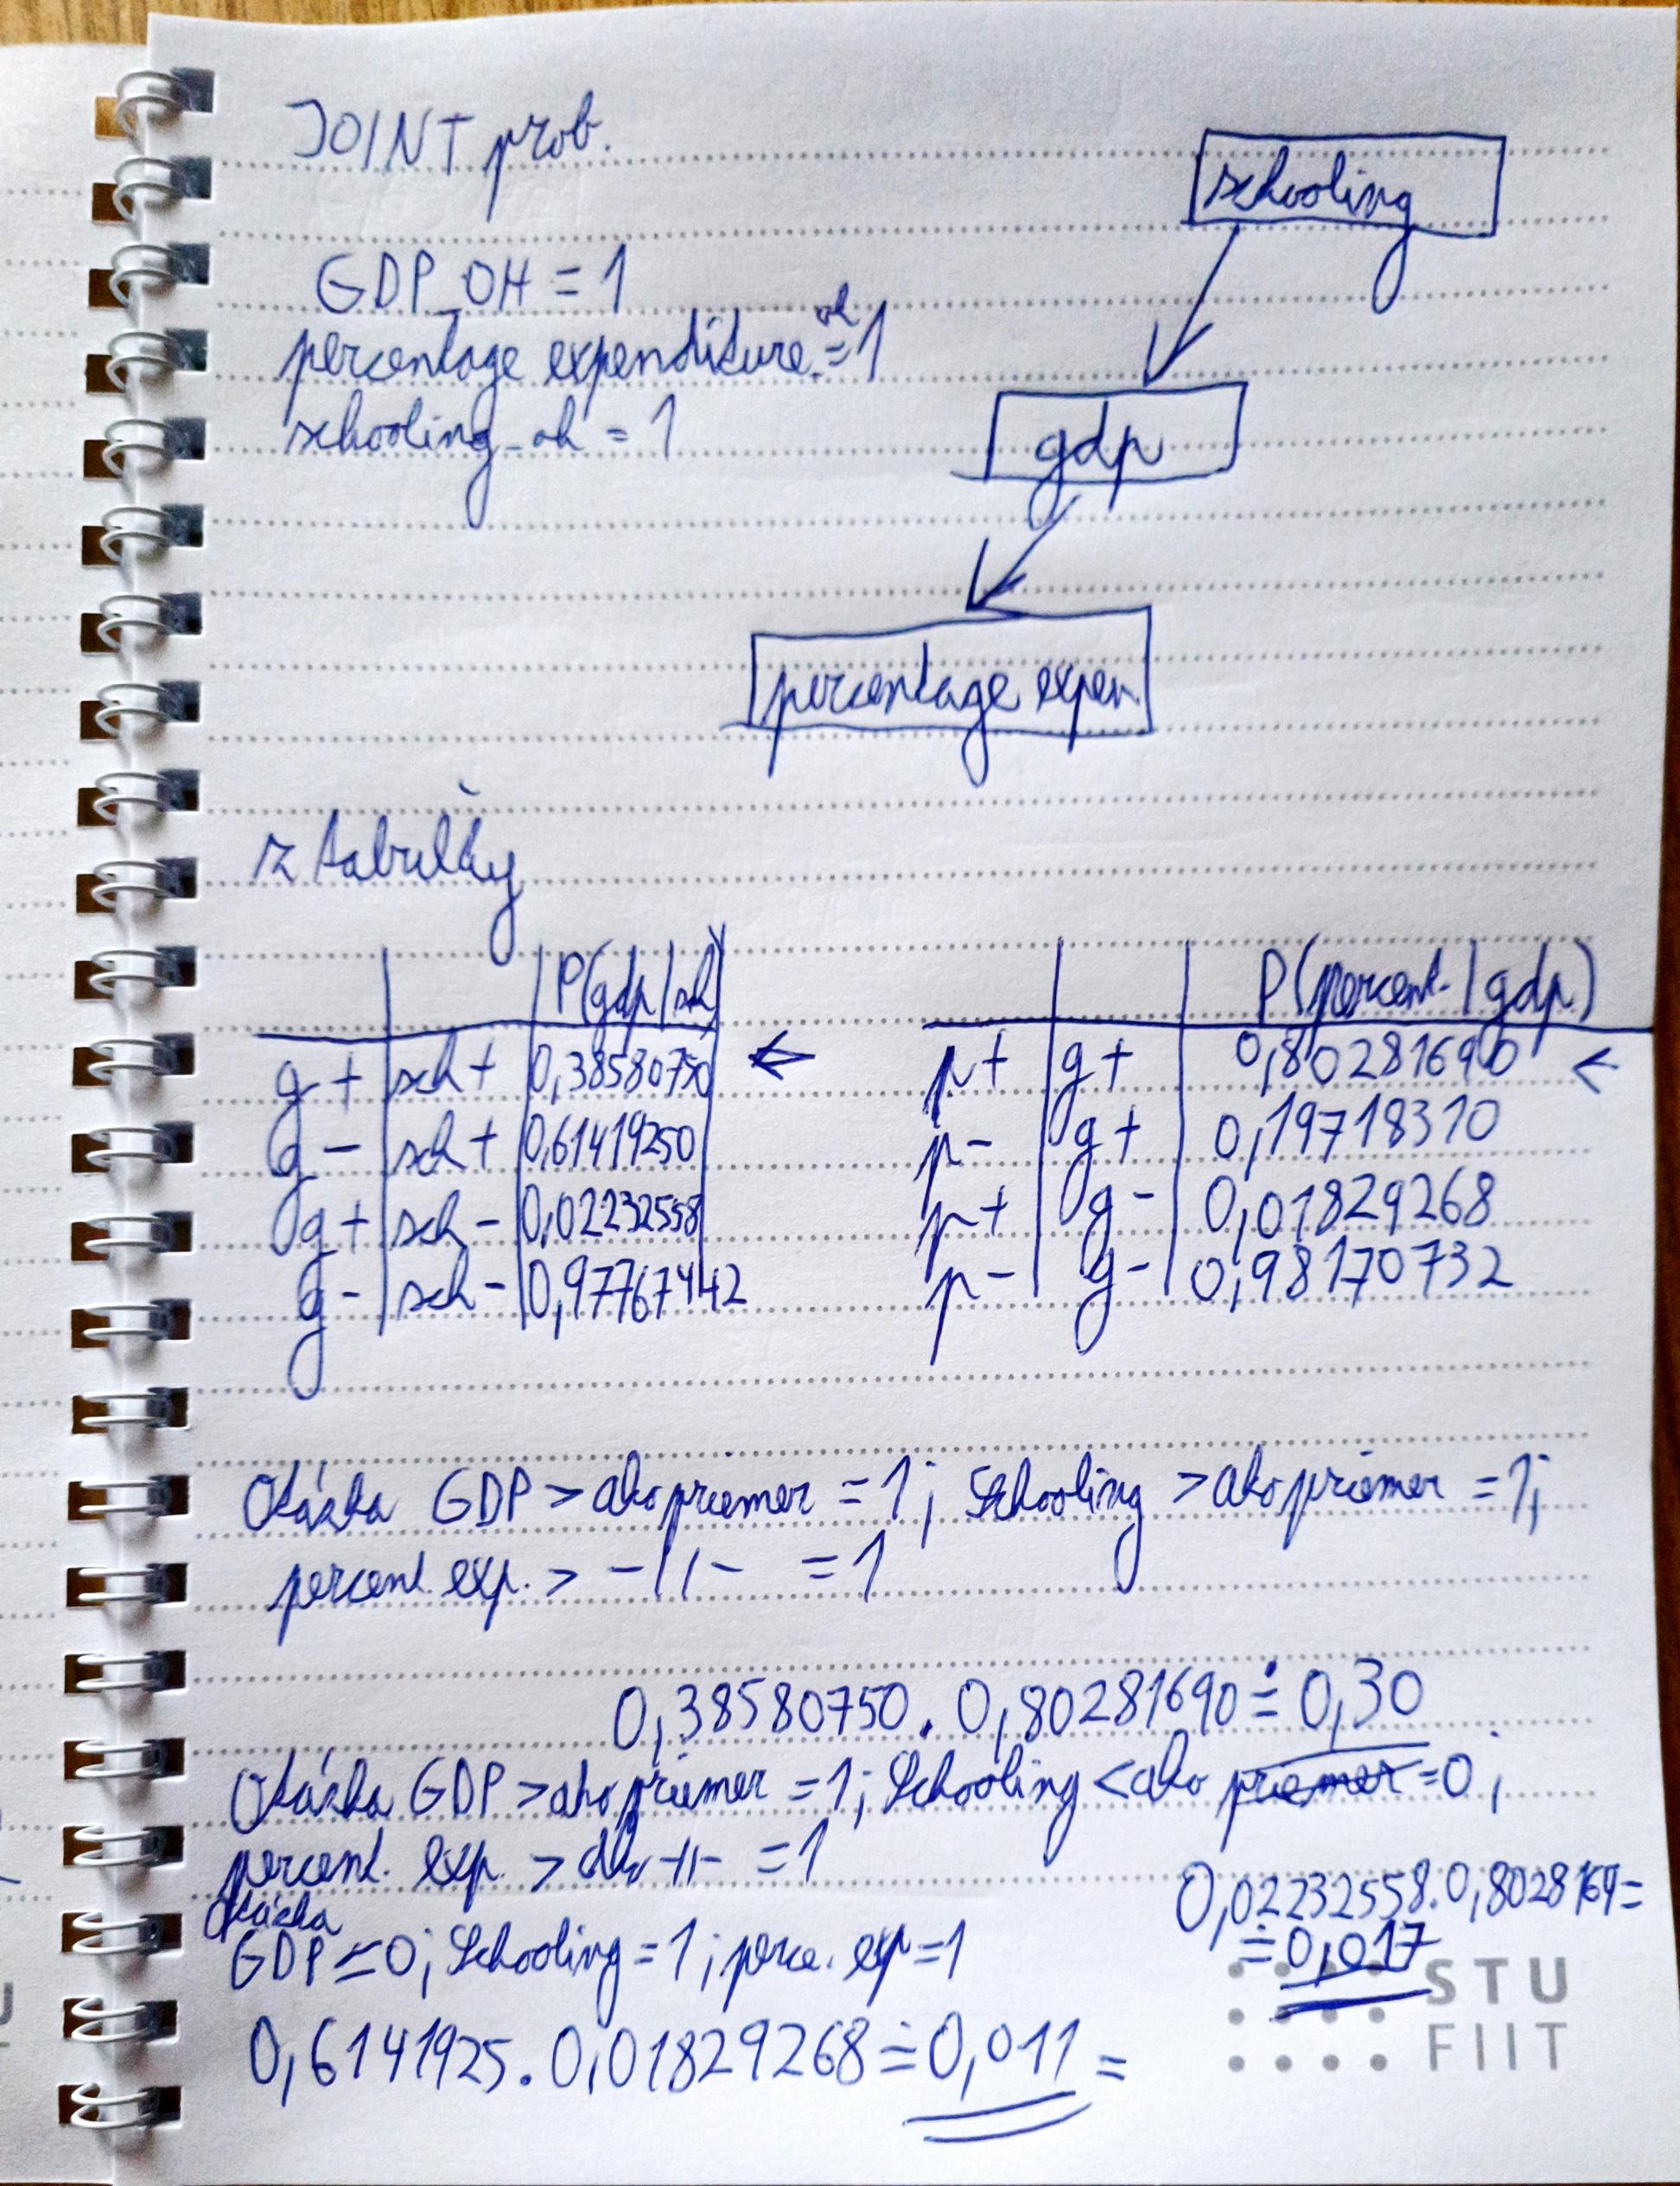 JOINT prob.
schooling
GDP_OH = 1
percentage expenditure_oh = 1
schooling_oh = 1
gdp
percentage expen.
z tabuľky
P(gdp|sch)
g + | sch + | 0,38580750 ←
g - | sch + | 0,61419250
g + | sch - | 0,02232558
g - | sch - | 0,97767442
P(percent.|gdp)
p + | g + | 0,80281690 ←
p - | g + | 0,19718310
p + | g - | 0,01829268
p - | g - | 0,98170732
Otázka GDP > ako priemer = 1; Schooling > ako priemer = 1;
percent. exp. > -||- = 1
0,38580750 . 0,80281690 ≐ 0,30
Otázka GDP > ako priemer = 1; Schooling < ako priemer = 0;
percent. exp. > -||- = 1
0,02232558 . 0,8028169 =
≐ 0,017
Otázka
GDP ≤ 0; Schooling = 1; perce. exp = 1
0,6141925 . 0,01829268 ≐ 0,011 =
STU
FIIT